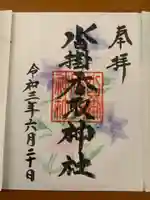 奉拝
水掛香取神社
令和三年六月二十日